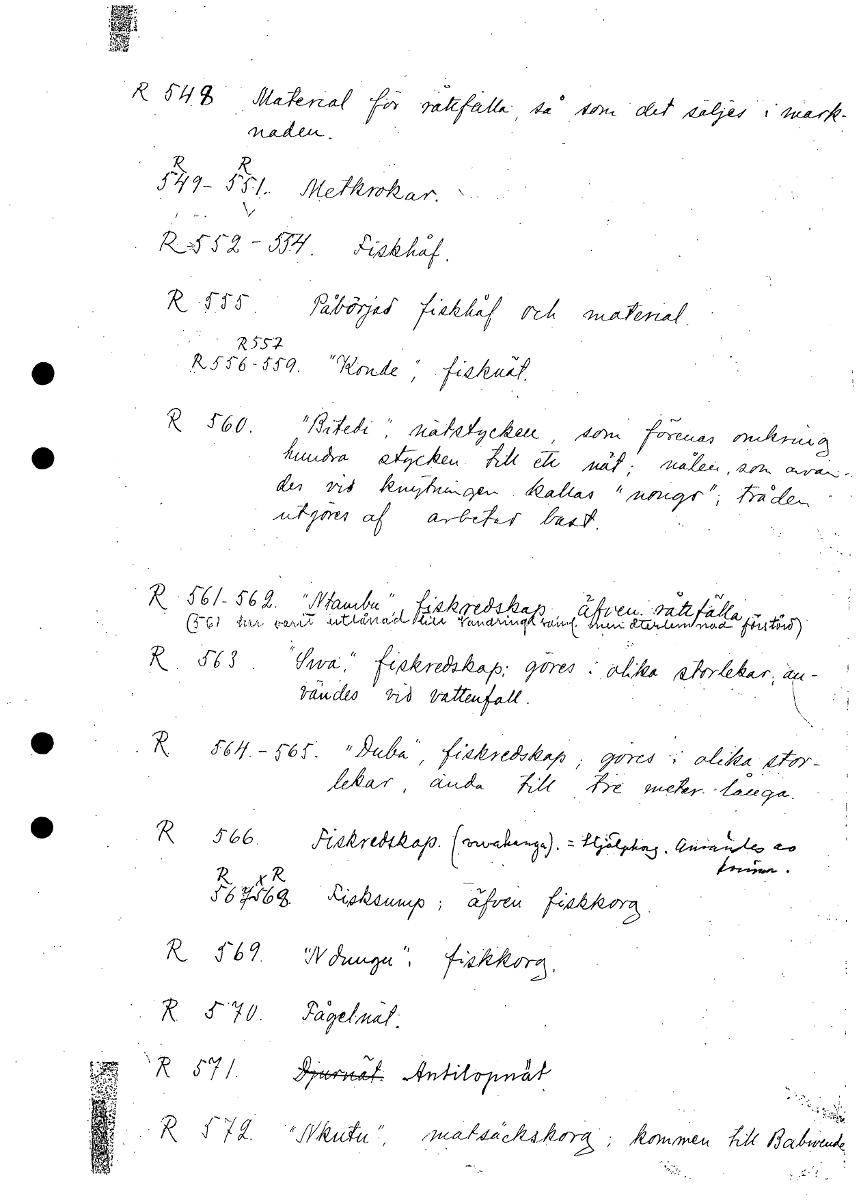 R 548 Material för råttfälla, så som det säljes i mark-
naden.
R R
549-551. Metkrokar.
R 552-554. Fiskhåf.
R 555. Påbörjad fiskhåf och material.
R 557
R 556-559. "Konde", fisknät.
R 560. "Bitedi", nätstycken, som förenas omkring
hundra stycken till ett nät; nålen, som använ-
des vid knytningen kallas "nongo"; tråden
utgöres af arbetad bast.
R 561-562. "Ntambu" fiskredskap, äfven råttfälla
(561 har varit utlånad till men återlemnad förstörd)
R 563. "Swa", fiskredskap; göres i olika storlekar, an-
vändes vid vattenfall.
R 564.-565. "Duba", fiskredskap; göres i olika stor-
lekar, ända till tre meter långa.
R 566. Fiskredskap. = Användes av
kvinnor.
R x R
567 568. Fisksump; äfven fiskkorg.
R 569. "Ndungu", fiskkorg.
R 570. Fågelnät.
R 571. Djurnät. Antilopnät
R 572. "Nkutu", matsäckskorg; kommen till Babwende